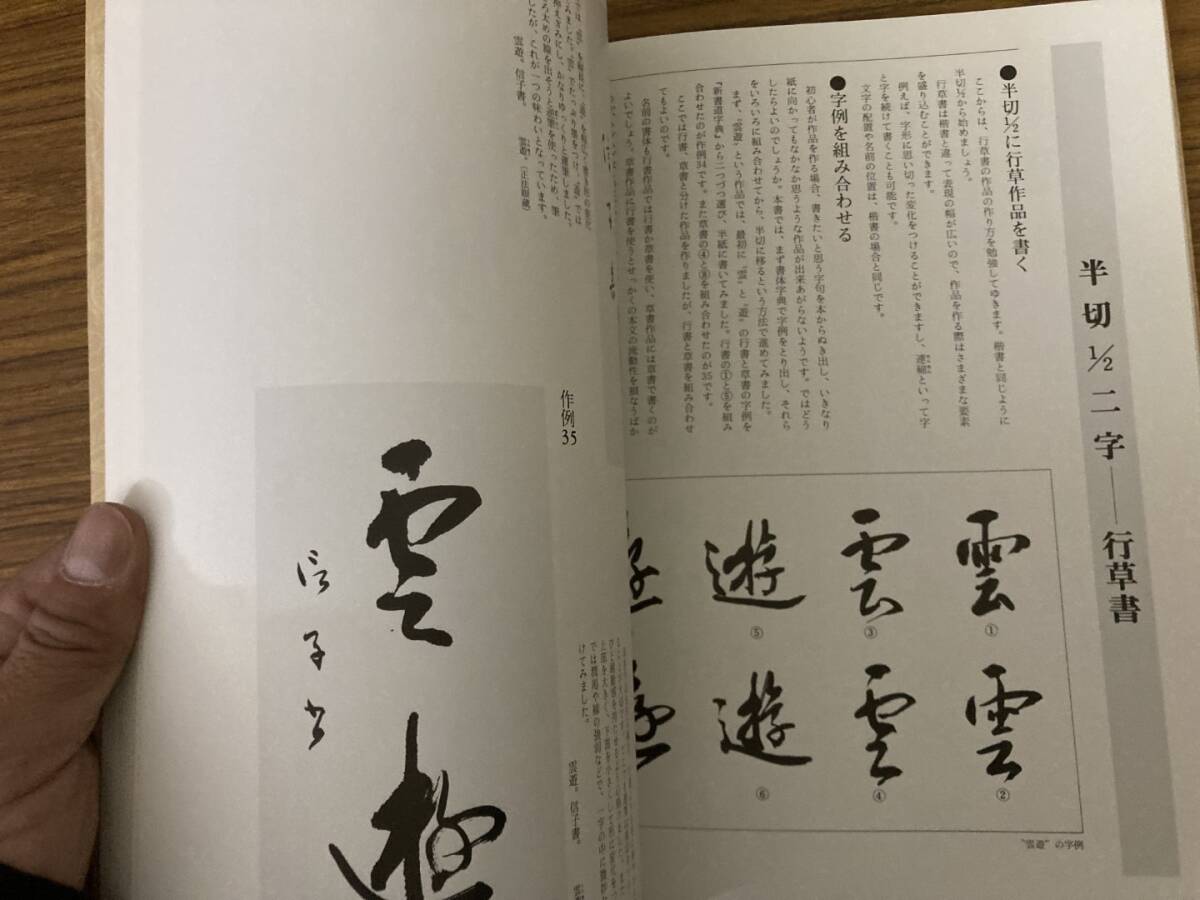 半切½二字──行草書
●半切½に行草作品を書く
ここからは、行草書の作品の作り方を勉強してゆきます。楷書と同じように
半切½から始めましょう。
行草書は楷書と違って表現の幅が広いので、作品を作る際はさまざまな要素
を盛り込むことができます。
例えば、字形に思い切った変化をつけることができますし、連綿といって字
と字を続けて書くことも可能です。
文字の配置や名前の位置は、楷書の場合と同じです。
●字例を組み合わせる
初心者が作品を作る場合、書きたいと思う字句を本からぬき出し、いきなり
紙に向かってもなかなか思うような作品が出来あがらないようです。ではどう
したらよいのでしょうか。本書では、まず書体字典で字例をとり出し、それら
をいろいろに組み合わせてから、半切に移るという方法で進めてみました。
まず、“雲遊”という作品では、最初に“雲”と“遊”の行書と草書の字例を
『新書道字典』から二つづつ選び、半紙に書いてみました。行書の①と⑤を組み
合わせたのが作例34です。また草書の④と⑧を組み合わせたのが35です。
ここでは行書、草書と分けた作品を作りましたが、行書と草書を組み合わせ
てもよいのです。
名前の書体も行書作品では行書か草書を使い、草書作品には草書で書くのが
よいでしょう。草書作品に行書を使うとせっかくの本文の流動性を損なうばか
雲
①
雲
②
雲
③
雲
④
遊
⑤
遊
⑥
“雲遊”の字例
ろ太めの線を出そうと逆筆を使ったため、筆
したが、これが一つの味わいとなっています。
雲遊。信子書。
雲遊。〔正法眼蔵〕
作例35
雲遊
信子書
では潤渇や線の強弱などで、一字の中に微妙
けてみました。
雲遊。信子書。